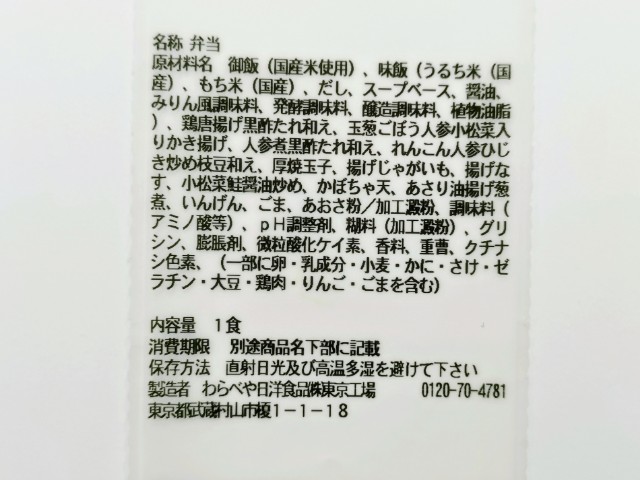 名称 弁当
原材料名 御飯（国産米使用）、味飯（うるち米（国
産）、もち米（国産）、だし、スープベース、醤油、
みりん風調味料、発酵調味料、醸造調味料、植物油脂
）、鶏唐揚げ黒酢たれ和え、玉葱ごぼう人参小松菜入
りかき揚げ、人参煮黒酢たれ和え、れんこん人参ひじ
き炒め枝豆和え、厚焼玉子、揚げじゃがいも、揚げな
す、小松菜鮭醤油炒め、かぼちゃ天、あさり油揚げ葱
煮、いんげん、ごま、あおさ粉／加工澱粉、調味料（
アミノ酸等）、ｐＨ調整剤、糊料（加工澱粉）、グリ
シン、膨脹剤、微粒酸化ケイ素、香料、重曹、クチナ
シ色素、（一部に卵・乳成分・小麦・かに・さけ・ゼ
ラチン・大豆・鶏肉・りんご・ごまを含む）
内容量 １食
消費期限 別途商品名下部に記載
保存方法 直射日光及び高温多湿を避けて下さい
製造者 わらべや日洋食品㈱東京工場 0120-70-4781
東京都武蔵村山市榎１－１－１８